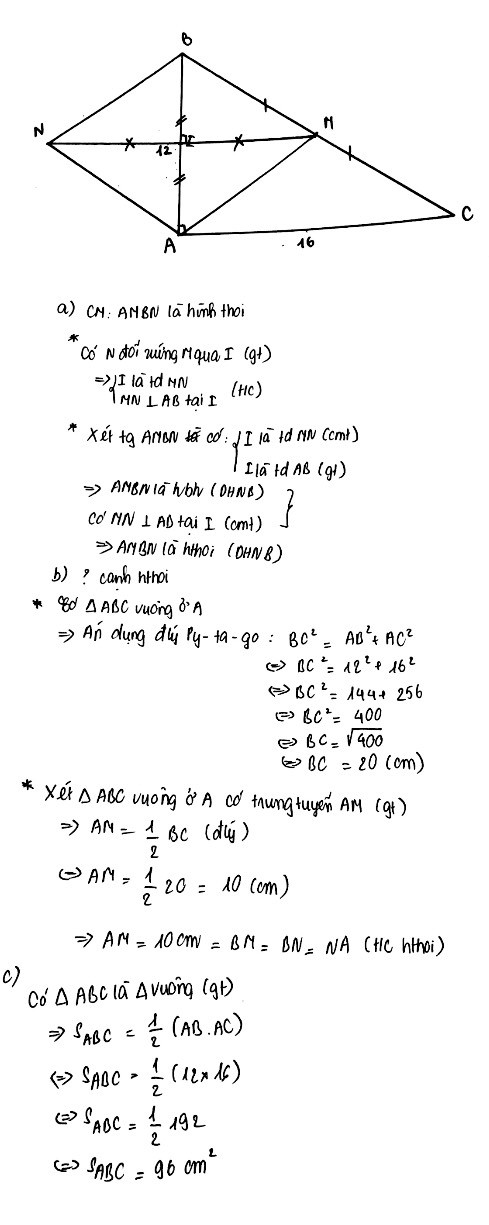 B
N
M
12
I
A
16
C
a) CM: AMBN là hình thoi
* Có N đối xứng M qua I (gt)
=> { I là td MN
MN ⊥ AB tại I (t/c)
* Xét tg AMBN có: { I là td MN (cmt)
I là td AB (gt)
=> AMBN là hbh (DHNB)
có MN ⊥ AB tại I (cmt)
=> AMBN là hthoi (DHNB)
b) ? cạnh hthoi
* Có Δ ABC vuông ở A
=> Áp dụng đlý Py-ta-go : BC² = AB² + AC²
<=> BC² = 12² + 16²
<=> BC² = 144 + 256
<=> BC² = 400
<=> BC = √400
<=> BC = 20 (cm)
* Xét Δ ABC vuông ở A có trung tuyến AM (gt)
=> AM = 1/2 BC (đlý)
<=> AM = 1/2 20 = 10 (cm)
=> AM = 10cm = BM = BN = NA (t/c hthoi)
c)
Có Δ ABC là Δ vuông (gt)
=> S_ABC = 1/2 (AB.AC)
<=> S_ABC = 1/2 (12 × 16)
<=> S_ABC = 1/2 192
<=> S_ABC = 96 cm²